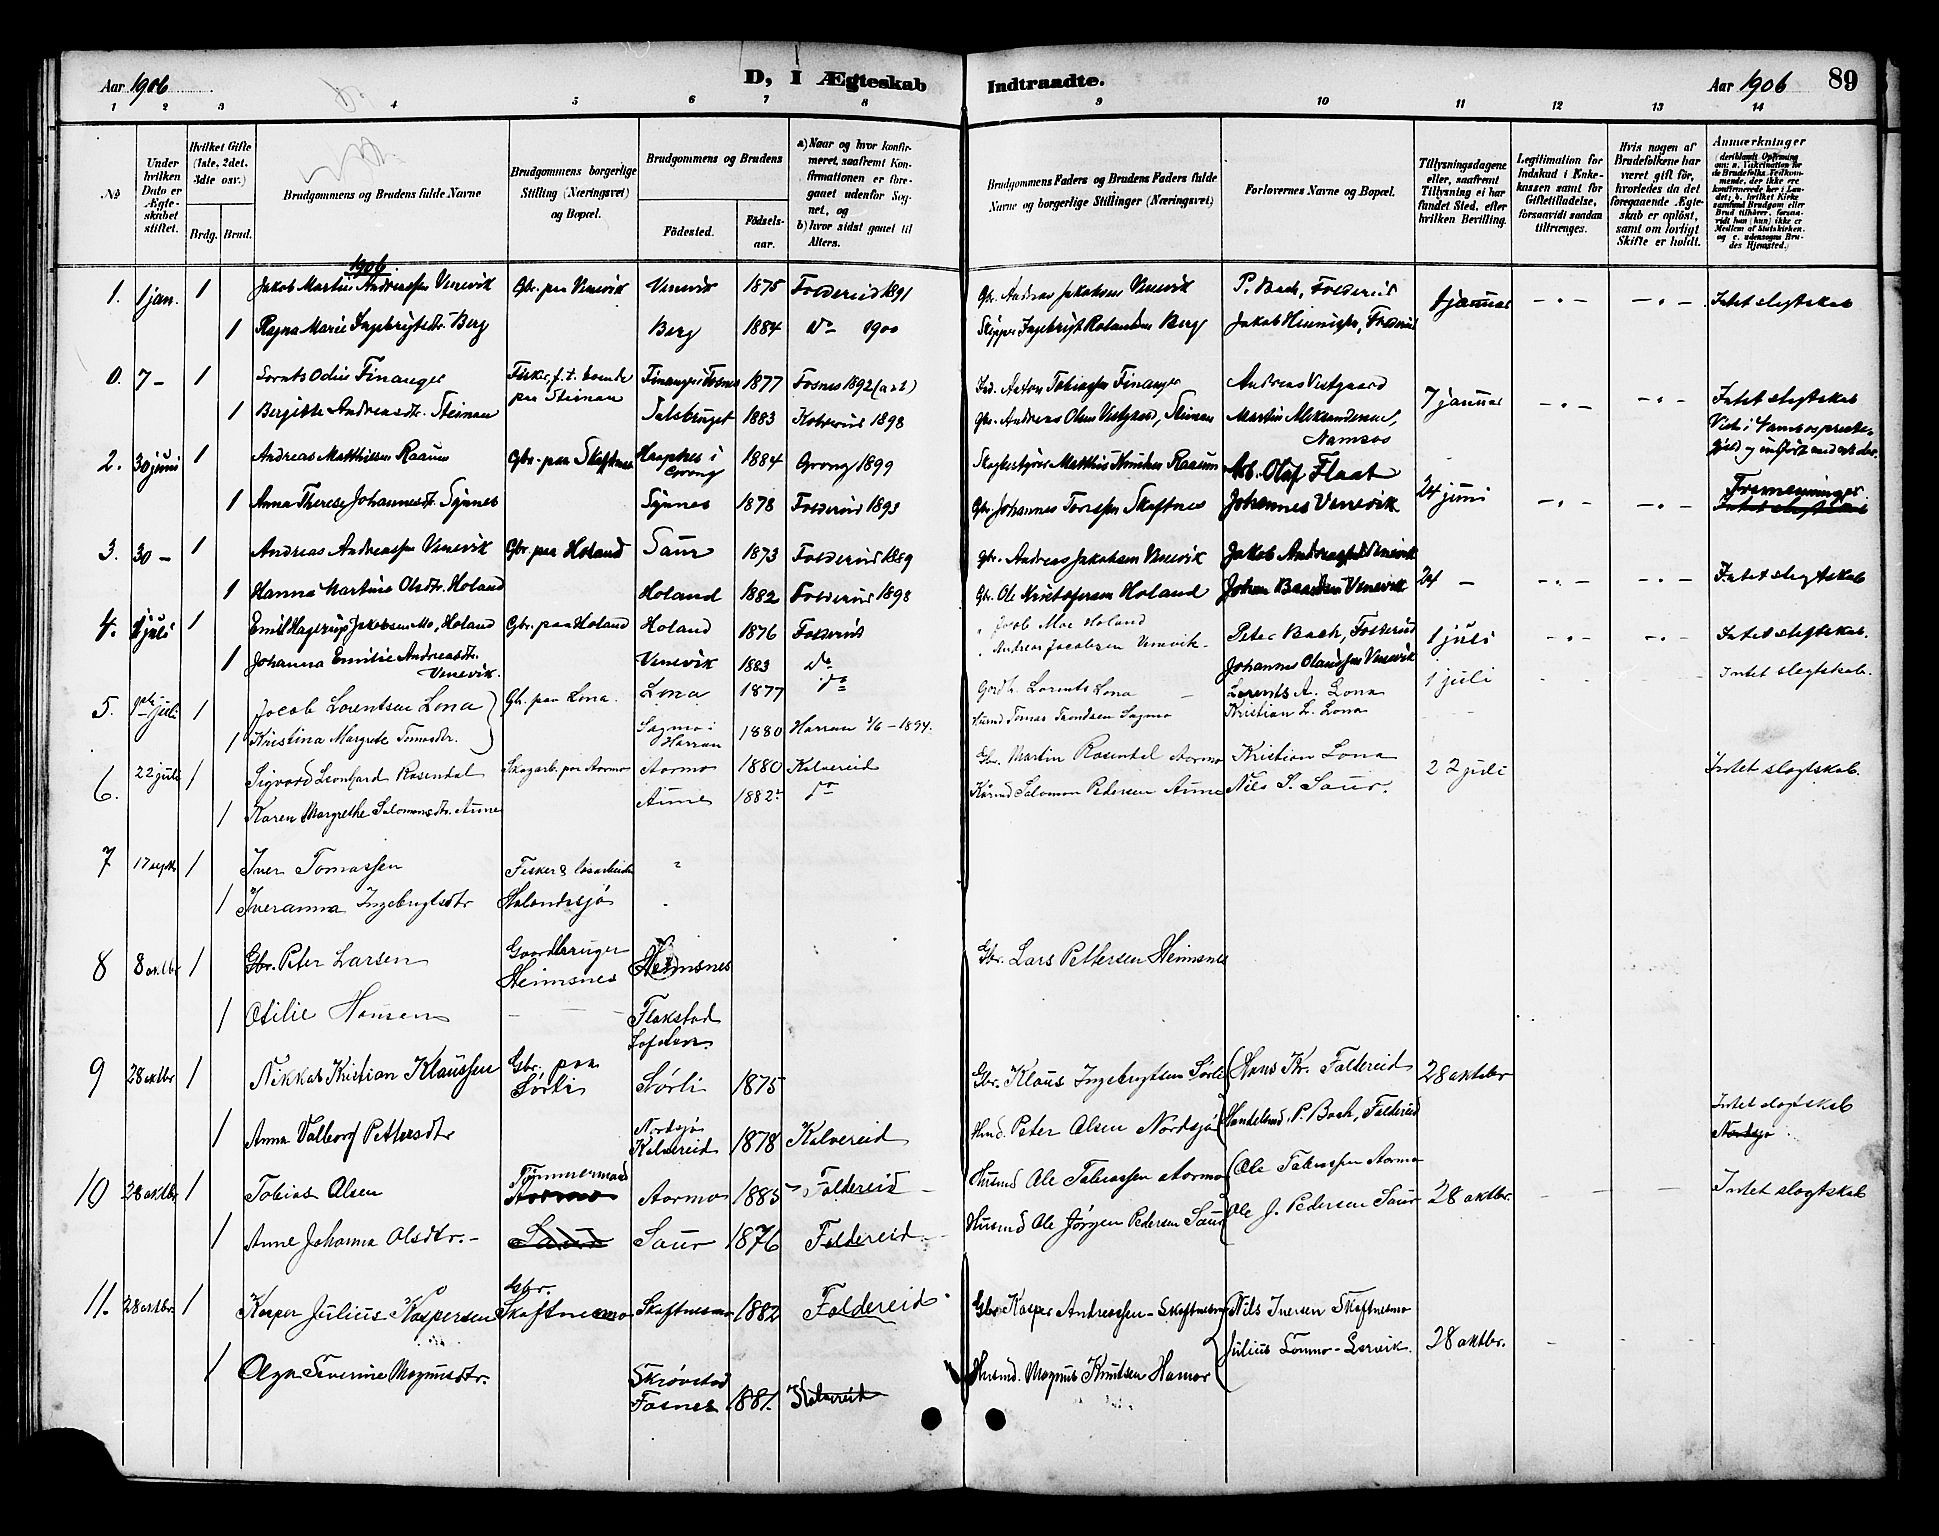 Aar 1906 D, I Ægteskab Indtraadte. Aar 1906 89
1 2 3 4 5 6 7 8 9 10 11 12 13 14
№
Under hvilken Dato er Ægteskabet stiftet.
Hvilket Gifte (1ste, 2det, 3die osv.)
Brdg. Brud.
Brudgommens og Brudens fulde Navne
Brudgommens borgerlige Stilling (Næringsvei) og Bopæl.
Brudgommens og Brudens
Fødested. Fødselsaar.
a) Naar og hvor konfirmeret, saafremt Konfirmationen er foregaaet udenfor Sognet, og
b) hvor sidst gaaet til Alters.
Brudgommens Faders og Brudens Faders fulde Navne og borgerlige Stillinger (Næringsvei)
Forlovernes Navne og Bopæl.
Tillysningsdagene eller, saafremt Tillysning ei har fundet Sted, efter hvilken Bevilling.
Legitimation for Indskud i Enkekassen samt for Giftetilladelse, forsaavidt saadan tiltrænges.
Hvis nogen af Brudefolkene har været gift før, hvorledes da det foregaaende Ægteskab er opløst, samt om lovligt Skifte er holdt.
Anmærkninger
1906.
1. 1 jan. 1 Jakob Martin Andreassen Vennevik Gbr. paa Vennevik Vennevik 1875 Foldereid 1891 Gbr. Andreas Jakobsen Vennevik P. Bach, Foldereid 1 januar - " - - " - Intet slegtskab
1 Ragna Marie Ingebrigtsdtr. Berg Berg 1884 do 1900 Skipper Ingebrigt Rolandsen Berg Jakob Hiennigts, Foldereid
0. 7 - 1 Lornts Odin Finanger Fisker, f. t. boende paa Steinan Finanger Fosnes 1877 Fosnes 1892 (a & b) Ind. Anton Tobiassen Finanger Andreas Vestgaard 7 januar - " - - " - Intet slegtskab
1 Bergitte Andreasdtr. Steinan Salsbruget 1883 Kolvereid 1898 Gbr. Andreas Olsen Vestgaard, Steinan Martin Aleksandersen, Namsos
Viet i Namsos prestegjeld og indført med et der.
2. 30 juni 1 Andreas Matthissen Raaum Gbr. paa Skaftnes Haapnes i Grong 1884 Grong 1899 Skogbestyrer Matthis Knudsen Raaum Arb. Olaf Flaat 24 juni - " - - " - Fremmeninger
1 Anna Therese Johannesdtr. Synnes Synnes 1878 Foldereid 1893 Gbr. Johannes Torresen Skaftnes Johannes Vennevik Intet slegtskab
3. 30 - 1 Andreas Andreassen Vennevik Gbr. paa Holand Saur 1873 Foldereid 1889 Gbr. Andreas Jakobsen Vennevik Jakob Andreassen Vennevik 24 - - " - - " - Intet slegtskab
1 Hanna Martine Olsdtr. Holand Holand 1882 Foldereid 1898 Gbr. Ole Kristofersen Holand Johan Baardsen Vennevik
4. 1 juli 1 Emil Hagerup Jakobsen Mo, Holand Gbr. paa Holand Holand 1876 Foldereid " Jacob Moe Holand Peter Bach, Foldereid 1 juli - " - - " - Intet slegtskab.
1 Johanna Emilie Andreasdtr. Vennevik. Vennevik 1883 do " Andreas Jacobsen Vennevik - Johannes Olaussen Vennevik
5. 1ste juli 1 Jacob Lorentsen Lona Gbr. paa Lona. Lona 1877 do Gardbr. Lorents Lona Lorents A. Lona 1 juli Intet slegtskab.
1 Kristina Margrete Tomasdtr. Sagmo i Harran 1880 Harran 3/6 - 1894. Husmd Tomas Trondsen Sagmo Kristian L. Lona
6. 22 juli 1 Sigvard Leonhard Rosendal Skogarb. paa Aarmo Aarmo 1880 Kolvereid Gbr. Martin Rosendal Aarmo Kristian Lona 22 juli Intet slegtskab.
1 Karen Margrethe Salomonsdtr. Aune Aune 1882 do Husmd Salomon Pedersen Aune Nils S. Saur.
7 17 septbr 1 Iver Tomassen Fisker & løsarbeider "
1 Iveranna Ingebrigtsdtr Holandssjø "
8 8 oktbr 1 Gbr. Peter Larsen Gaardbruger Heimsnes Heimsnes Gbr. Lars Pettersen Heimsnes
1 Otilie Hansen - - - Flakstad Lofoten.
9 28 oktbr 1 Nikkal Kristian Klaussen Gbr. paa Sørli Sørli 1875 Gbr. Klaus Ingebrigtsen Sørli Hans Kr. Foldereid 28 oktbr
1 Anna Valborg Pettersdtr Nordsjø Kolvereid 1878 Kolvereid Husmd. Peter Olsen Nordsjø Handelsmd. P. Bach, Foldereid Intet slegtskab Nordsjø
10 28 oktbr 1 Tobias Olsen Tømmermand Aarmo Aarmo 1885 - Foldereid - Husmd Ole Tobiassen Aarmo Ole Tobiassen Aarmo 28 oktbr. - - - Intet slegtskab
1 Anne Johanna Olsdtr. - Saur Saur 1876 Foldereid - Husmd Ole Jørgen Pedersen Saur Ole J. Pedersen Saur
11. 28 oktbr. 1 Kasper Julius Kaspersen Gbr. Skaftnesmo Skaftnesmo 1882 Foldereid Gbr Kasper Andreassen - Skaftnesmo Nils Iversen Skaftnesmo 28 oktbr. - - -
1 Olga Severine Magnusdtr. Skrøvstad Fosnes 1881. Kolvereid Husmd. Magnus Knutsen Hamar Julius Tommo - Lervik.